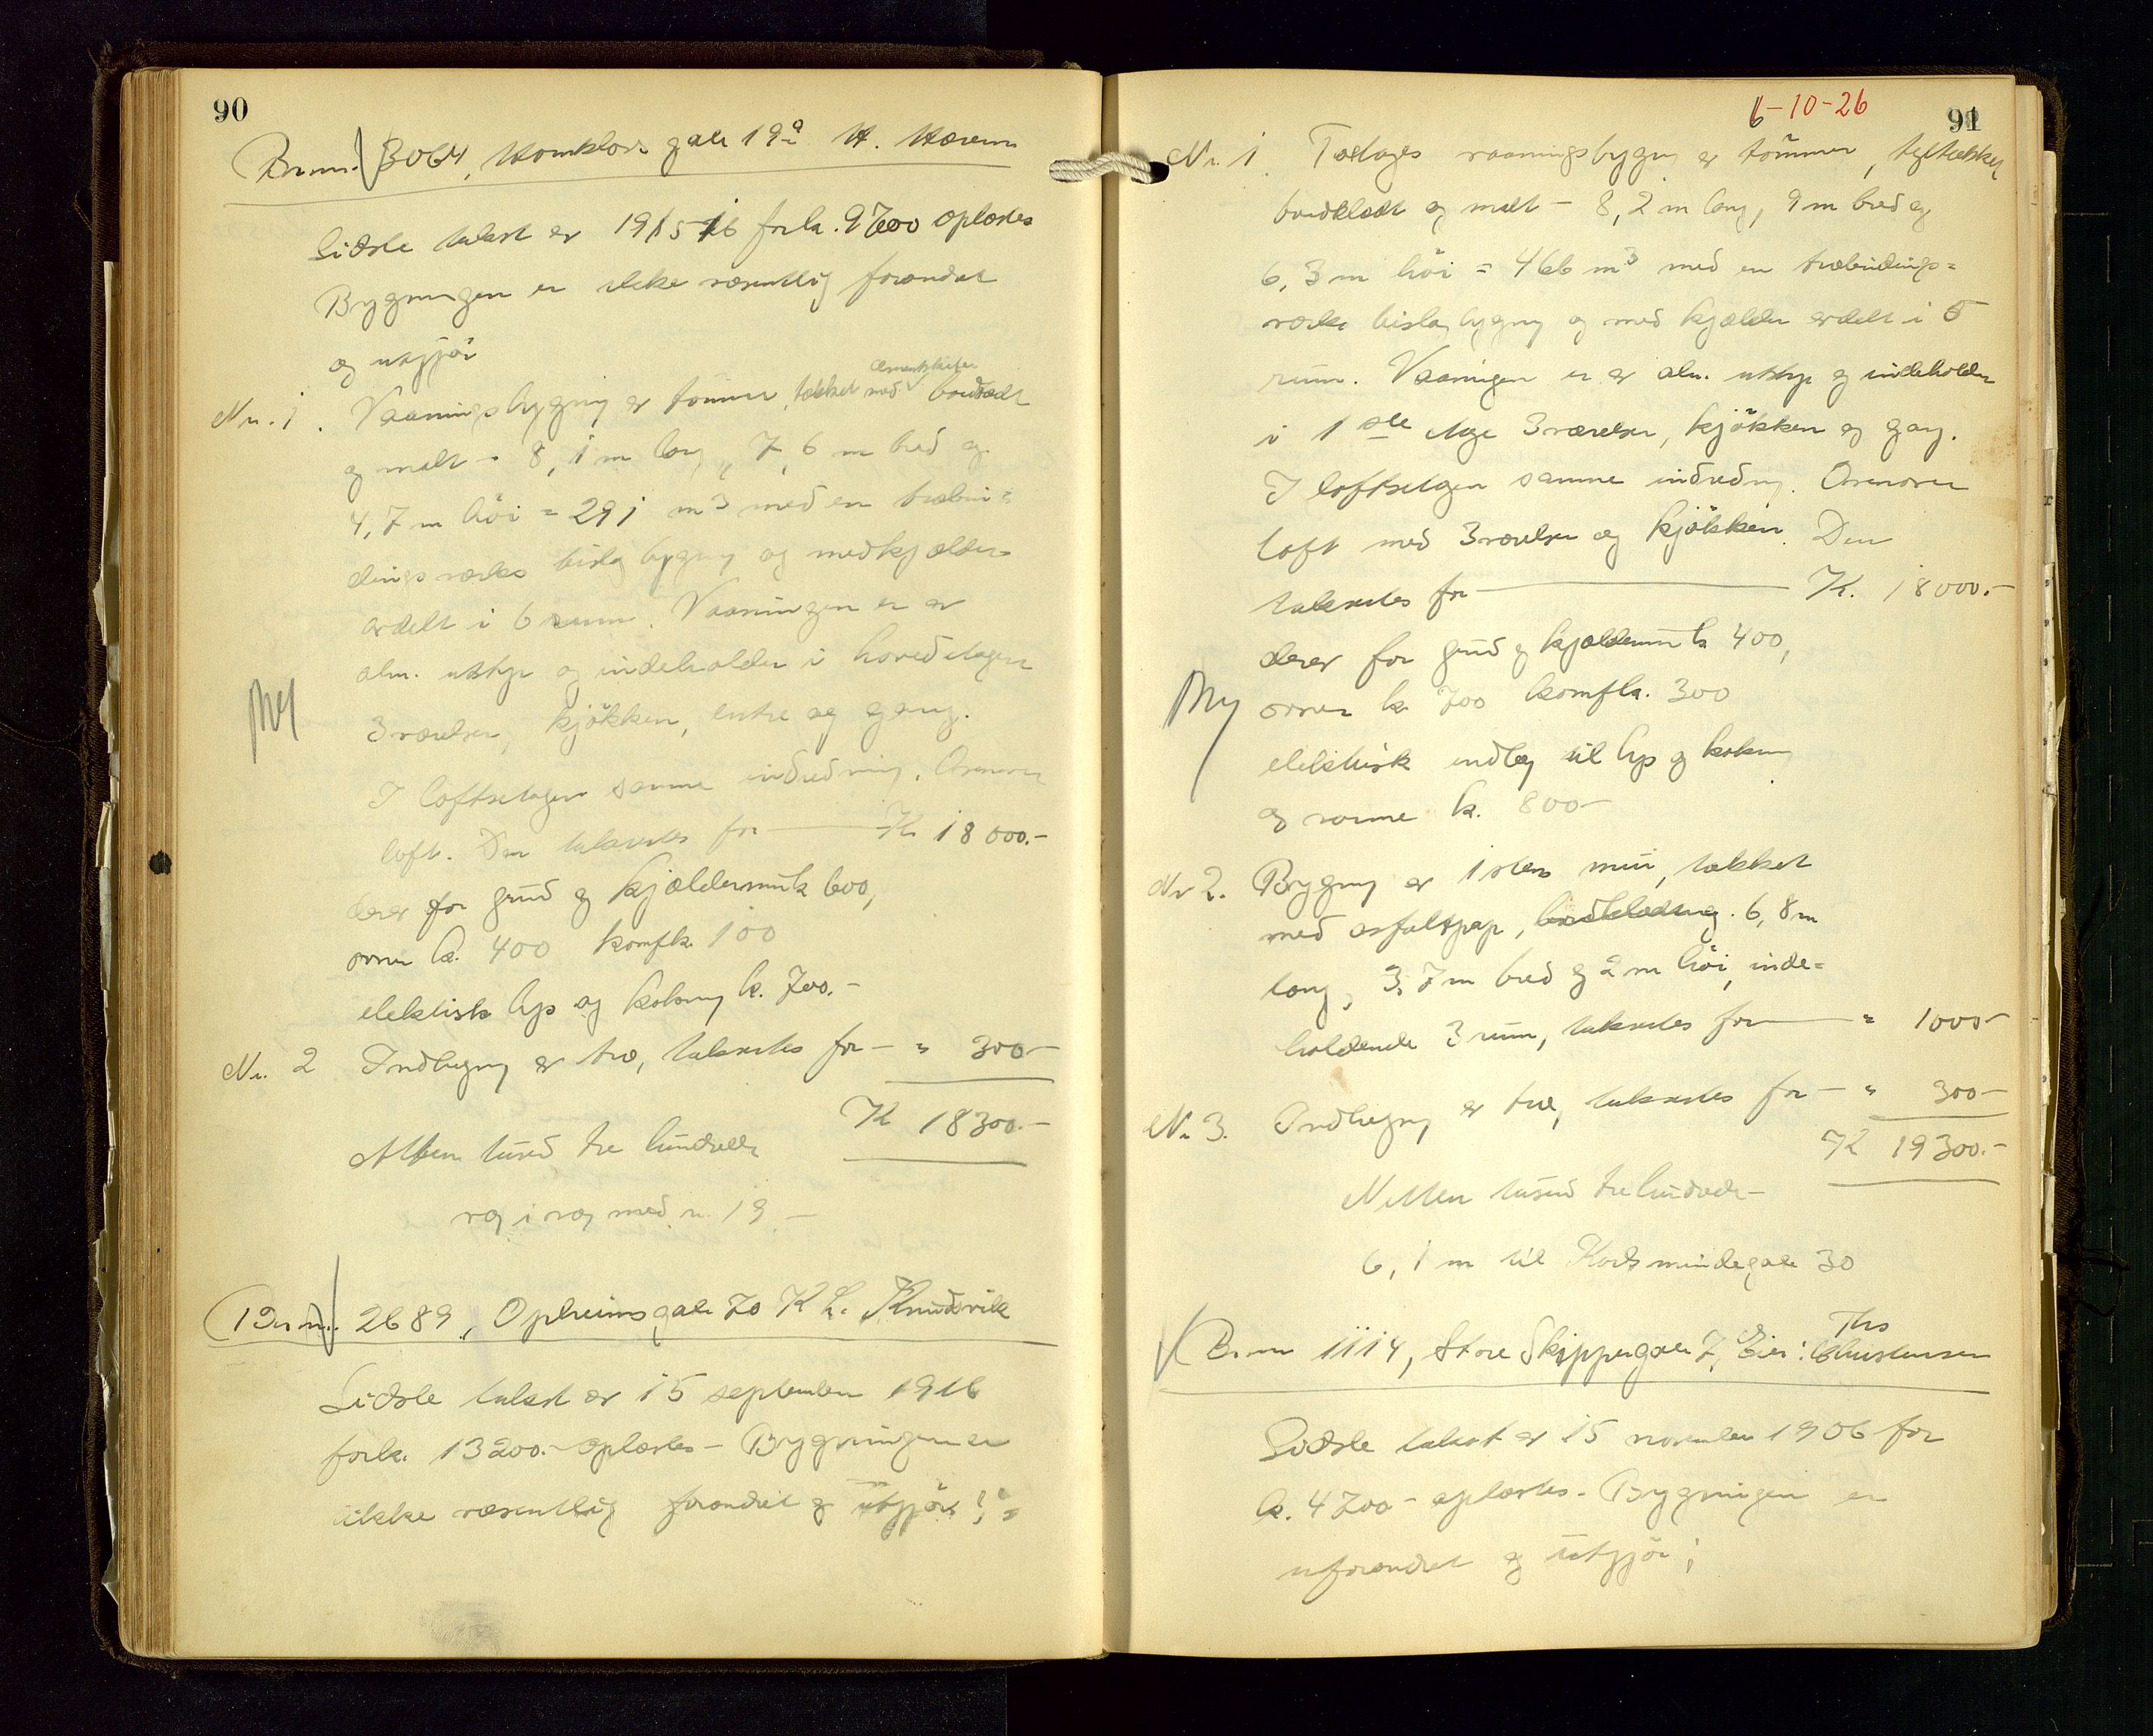 90
Br.nr. 3064, Homklovs gate 19a H.
Sidste takst er 19/5 16 for kr. 9700 oplæstes
Bygningen er ikke væsentlig forandret
og utgjør
Nr. 1. Vaaningsbygning av tømmer, tækket med cementskifer bordklædt
og malt - 8,1 m lang, 7,6 m bred og
4,7 m höi = 291 m3 med en træbin=
dingsverks bislagbygning og med kjælder
avdelt i 6 rum. Vaaningen er av
alm. utstyr og indeholder i hovedetagen
3 værelser, kjøkken, entre og gang.
I loftsetagen samme indredning. Ovenover
loft. Den takseres for K. 18000.-
derav for grund og kjældermur k 600,
ovner k. 400 komf k. 100
elektrisk lys og kokning k. 700.-
Nr. 2 Indhegning av træ, takseres for - " 300-
K 18300.-
Atten tusend tre hundrede
væg i væg med nr. 19 -
Br.nr. 2689, Opheimsgate 70 K. L. Knudsvik
Sidste takst er 15 september 1916
for k. 13200.- oplæstes - Bygningen er
ikke væsentlig forandret og utgjør:
6-10-26
91
Nr. 1 Toetages vaaningsbygning av tömmer, tegltækket
bordklædt og malt - 8,2 m lang, 9 m bred og
6,3 m höi = 466 m3 med en træbindings=
verks bislagbygning og med kjælder avdelt i 5
rum. Vaaningen er av alm. utstyr og indeholder
i 1ste etage 3 værelser, kjøkken og gang.
I loftsetagen samme indredning. Ovenover
loft med 3 værelser og kjøkken. Den
takseres for K. 18000.-
derav for grund og kjældermur k 400,
ovner k. 700 komf k. 300
elektrisk indlæg til lys og kokning
og varme k. 800-
Nr 2. Bygning av 1 stens mur, tækket
med asfaltpap, bordklædning. 6,8 m
lang, 3,7 m bred og 2 m höi, inde=
holdende 3 rum, takseres for " 1000-
Nr 3. Indhegning av træ, takseres for - " 300-
K 19300.-
Nitten tusend tre hundrede -
6,1 m til Hodsmindegate 30
Br.nr 1114, Store Skippergate 7, Eier: Ths Christensen
Sidste takst er 15 november 1906 for
k. 4700 - oplæstes. Bygningen er
uforandret og utgjør;